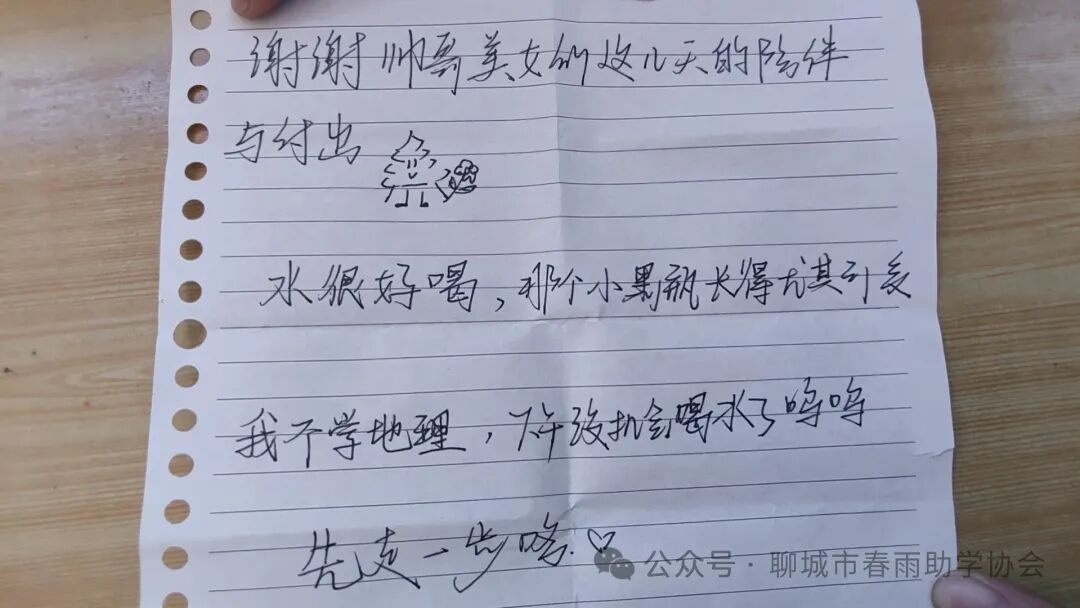 谢谢帅哥美女们这几天的陪伴
与付出
水很好喝，那个小黑瓶长得尤其引人
我不学地理，下午没机会喝水了呜呜
先走一步咯.♡
公众号·聊城市春雨助学协会